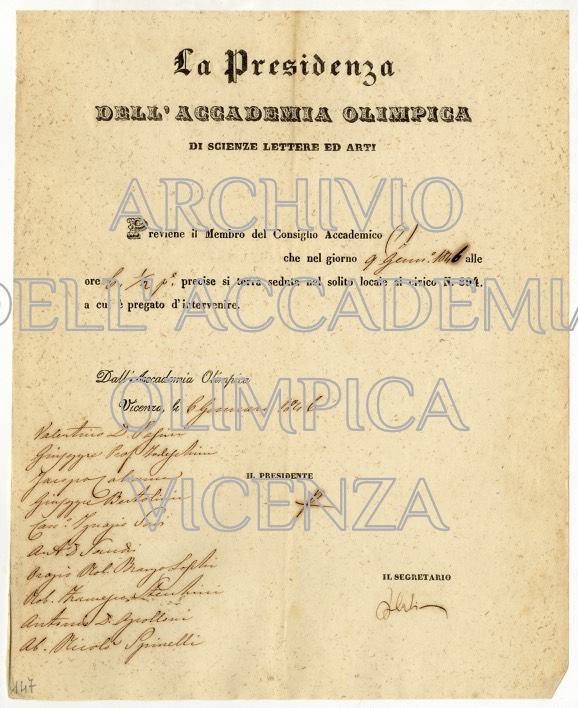 La Presidenza
DELL'ACCADEMIA OLIMPICA
DI SCIENZE LETTERE ED ARTI
Previene il Membro del Consiglio Accademico (1)
che nel giorno 9 Genn.º 1846 alle
ore 6. 1/2 p.º precise si terra seduta nel solito locale al civico N. 894.
a cui è pregato d'intervenire.
Dall'Accademia Olimpica
Vicenza, li 6 Gennaro 1846
Valentino D. Pasini
Giuseppe Prof.
Jacopo Cabianca
Giuseppe
Cav.º Ignazio
A. A. D.
Orazio Nob. Branzo Loschi
Nob. Francesco
Antonio D. Apolloni
Ab. Nicolò Spinelli
IL PRESIDENTE
IL SEGRETARIO
147
ARCHIVIO
DELL'ACCADEMIA
OLIMPICA
VICENZA